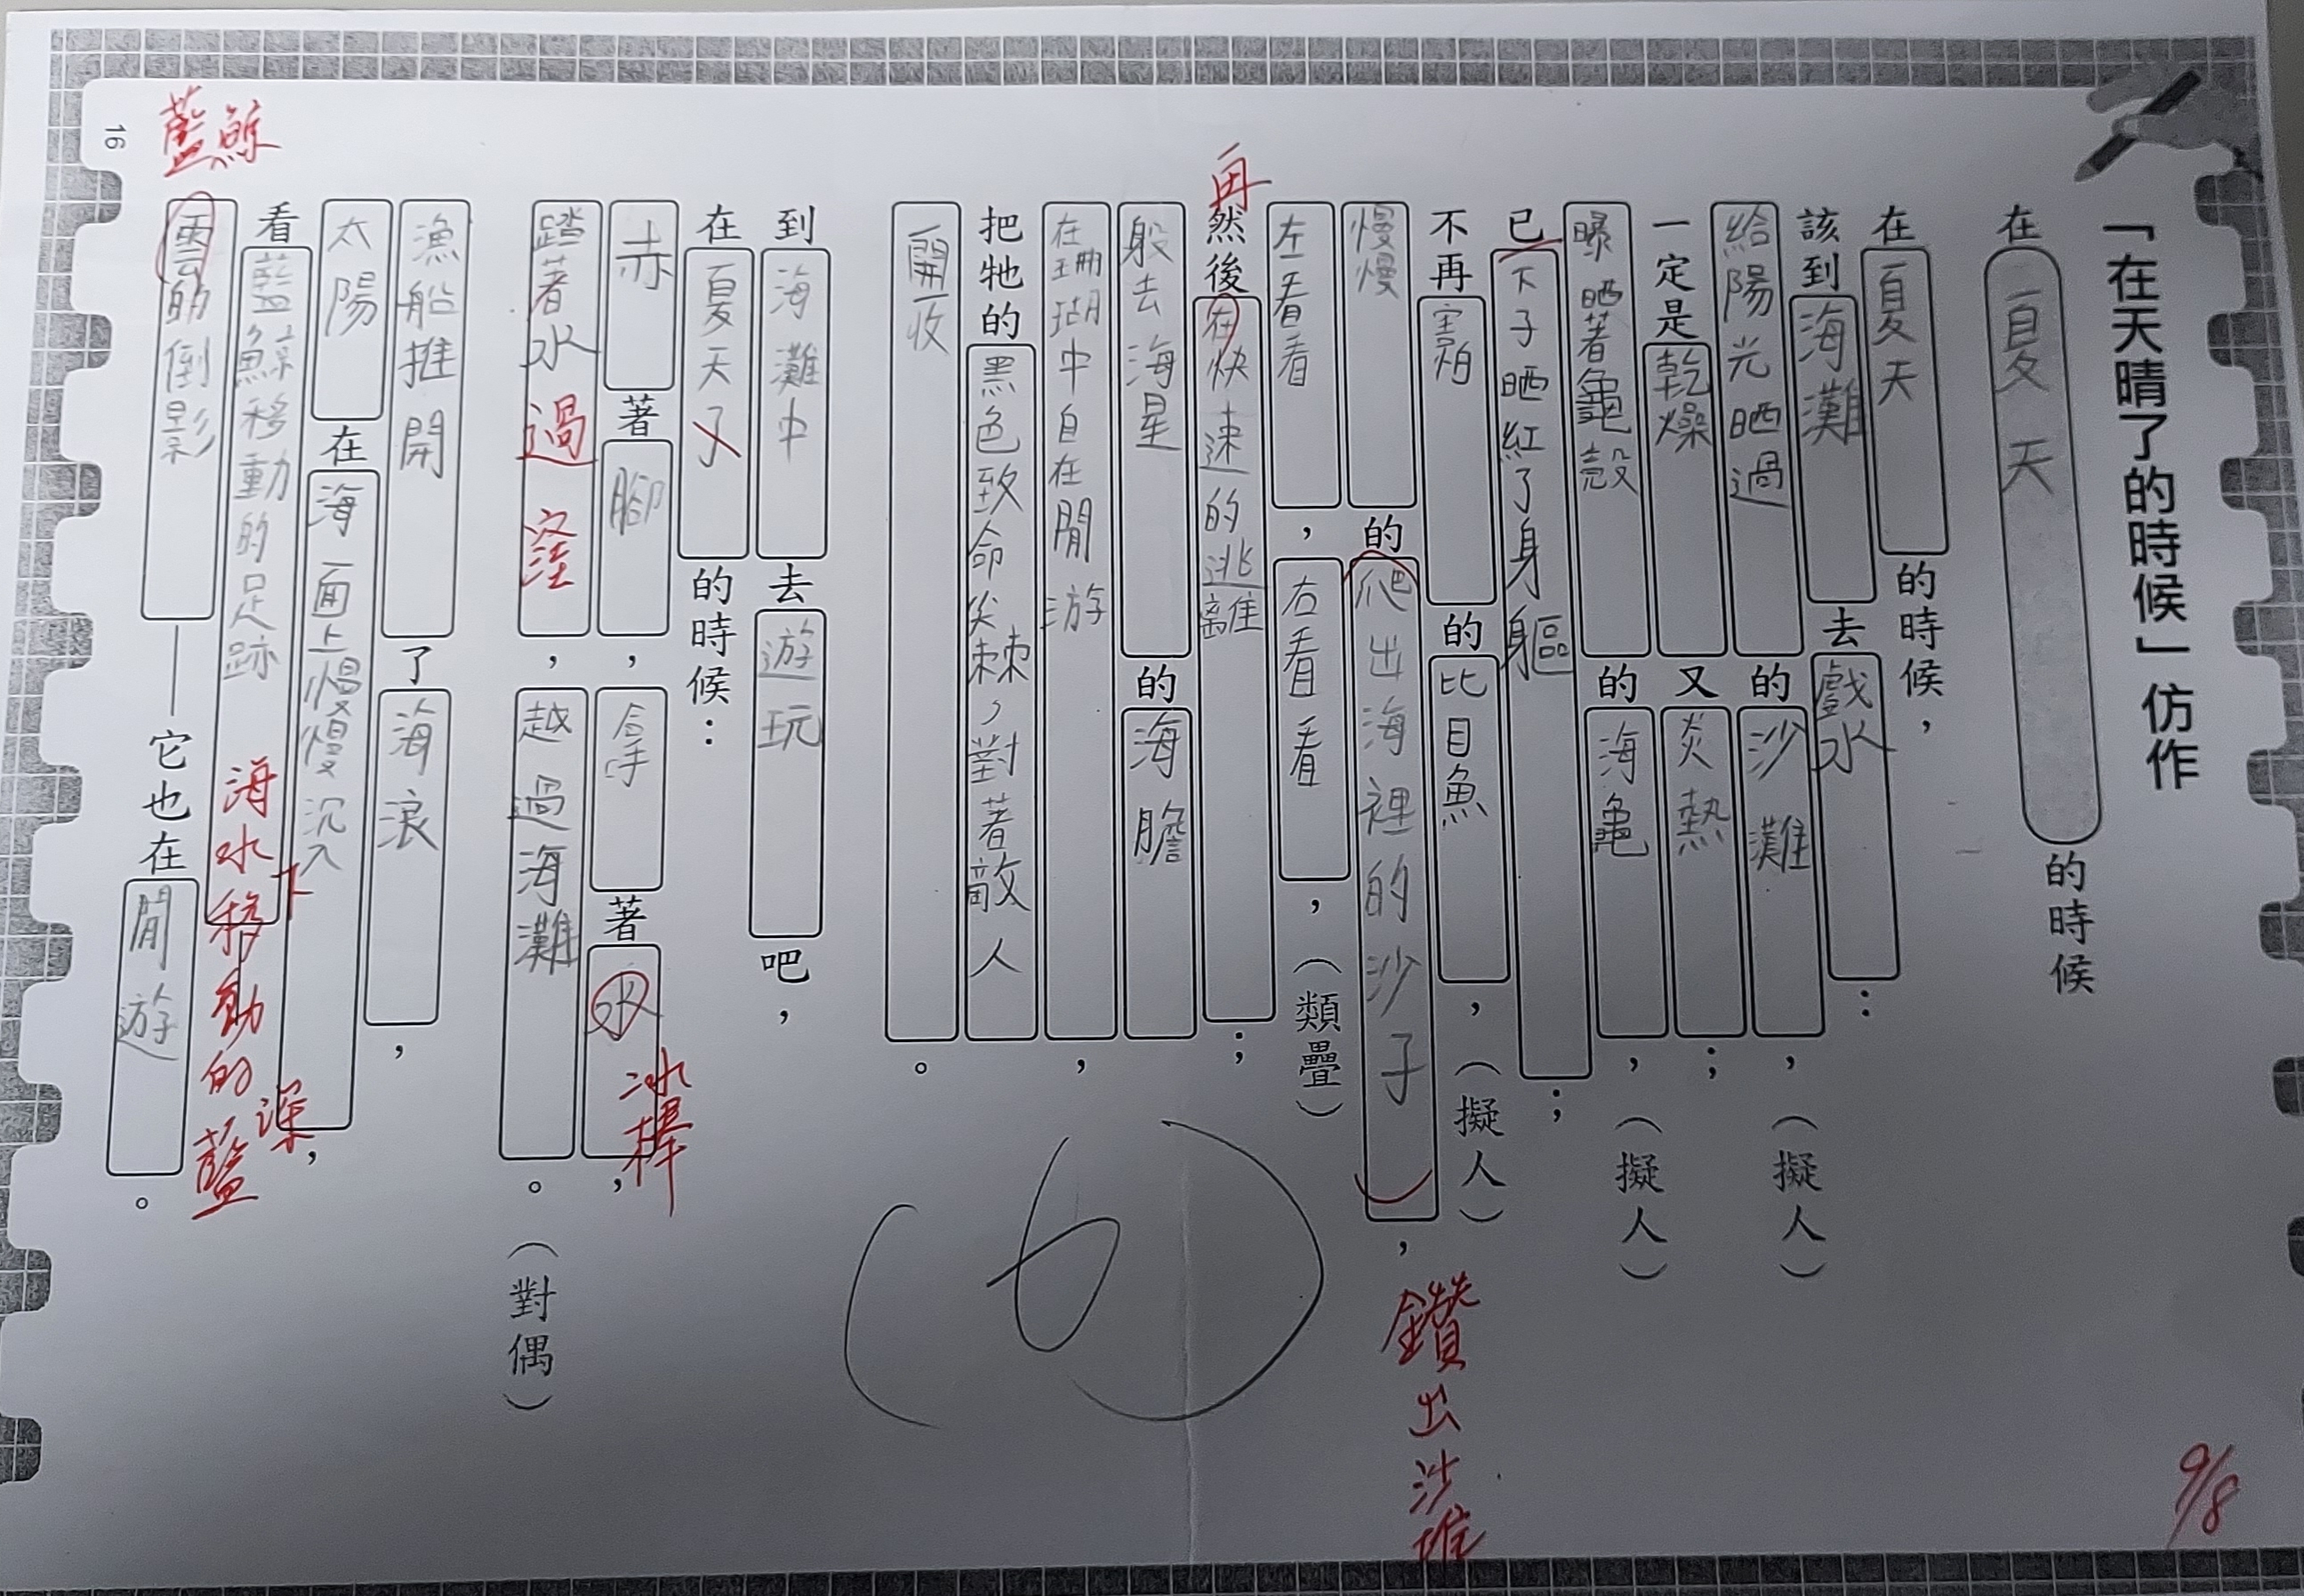 「在天晴了的時候」仿作
在夏天的時候
在夏天的時候，
該到海灘去戲水：
給陽光晒過的沙灘，（擬人）
一定是乾燥又炎熱；
曝晒著龜殼的海龜，（擬人）
已下子晒紅了身軀；
不再害怕的比目魚，（擬人）
慢慢的爬出海裡的沙子，
鑽出沙堆
左看看，右看看，（類疊）
再
然後在快速的逃離；
般去海星的海膽
在珊瑚中自在閒游，
把牠的黑色致命尖棘，對著敵人
一開一收。
到海灘中去遊玩吧，
在夏天了的時候：
赤著腳，拿著水，
冰棒
踏著水過窪，越過海灘。（對偶）
漁船推開了海浪，
太陽在海面上慢慢沉入，
下
深
看藍鯨移動的足跡
海水移動的藍
藍鯨
雲的倒影——它也在閒遊。
(6)
9/8
16